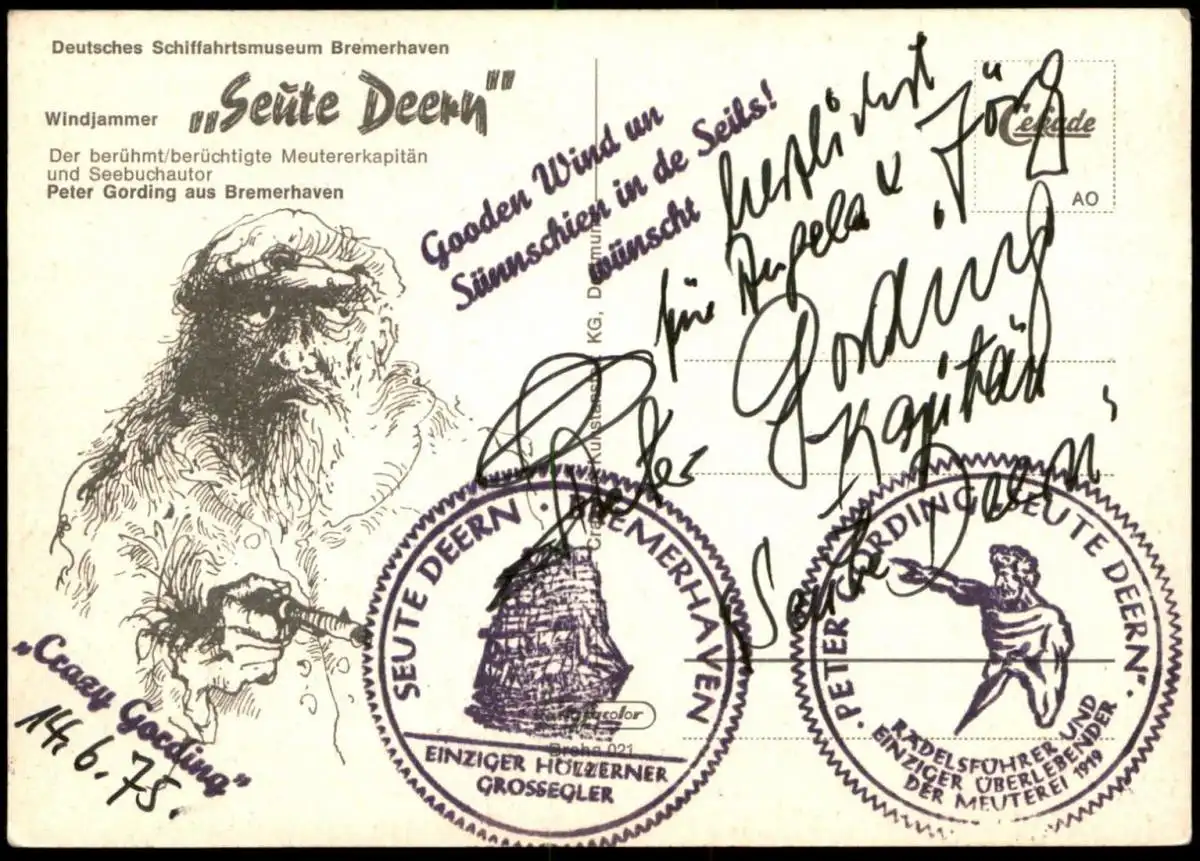 Deutsches Schiffahrtsmuseum Bremerhaven
Windjammer „Seute Deern"
Der berühmt/berüchtigte Meutererkapitän
und Seebuchautor
Peter Gording aus Bremerhaven
Gooden Wind un
Sünnschien in de Seils!
wünscht
Cekade
AO
herzlichst
für Angela u. Jörg
Peter Gording
Kapitän
„Seute Deern"
KG, Dortmund
SEUTE DEERN · BREMERHAVEN
EINZIGER HÖLZERNER
GROSSEGLER
Droha 021
· PETER GORDING „SEUTE DEERN" ·
RÄDELSFÜHRER UND
EINZIGER ÜBERLEBENDER
DER MEUTEREI 1919
„Crazy Gording"
14.6.75.